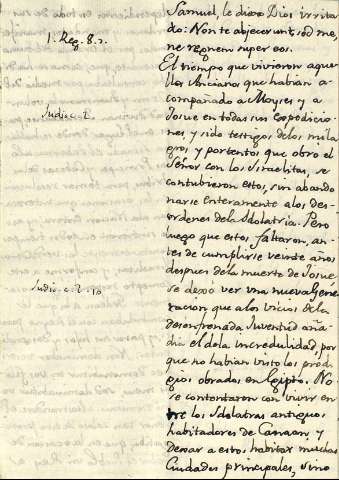 Samuel, le dixo Dios irrita
do: Non te abjecerunt, sed me,
1. Reg. 8. 7.
ne regnem super eos.
El tiempo que vivieron aque
llos Ancianos que habian a
compañado a Moyses y a
Judic. c. 2.
Josue en todas sus expedicio
nes, y sido testigos de los mila
gros, y portentos que obro el
Señor con los Israelitas, se
contubieron estos, sin abando
narse enteramente a los des-
ordenes de la Idolatria. Pero
luego que estos faltaron, an-
tes de cumplirse veinte años
despues de la muerte de Josue
Judic. c. 2. 10.
se dexó ver una nueva Gene
racion, que a los vicios de la
desenfrenada Juventud aña-
dia el de la incredulidad, por
que no habian visto los prodi
gios obrados en Egipto. No
se contentaron con vivir en
tre los Idolatras antiguos
habitadores de Canaan, y
dexar a estos habitar muchas
Ciudades principales, sino